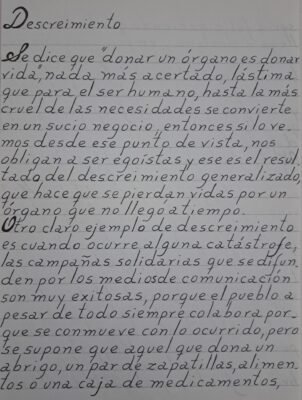 Descreimiento
Se dice que "donar un órgano es donar
vida", nada más acertado, lástima
que para el ser humano, hasta la más
cruel de las necesidades se convierte
en un sucio negocio, entonces si lo ve-
mos desde ese punto de vista, nos
obligan a ser egoístas y ese es el resul_
tado del descreimiento generalizado,
que hace que se pierdan vidas por un
órgano que no llegó a tiempo.
Otro claro ejemplo de descreimiento
es cuando ocurre alguna catástrofe,
las campañas solidarias que se difun_
den por los medios de comunicación
son muy exitosas, porque el pueblo a
pesar de todo siempre colabora por_
que se conmueve con lo ocurrido, pero
se supone que aquel que dona un
abrigo, un par de zapatillas, alimen_
tos o una caja de medicamentos,